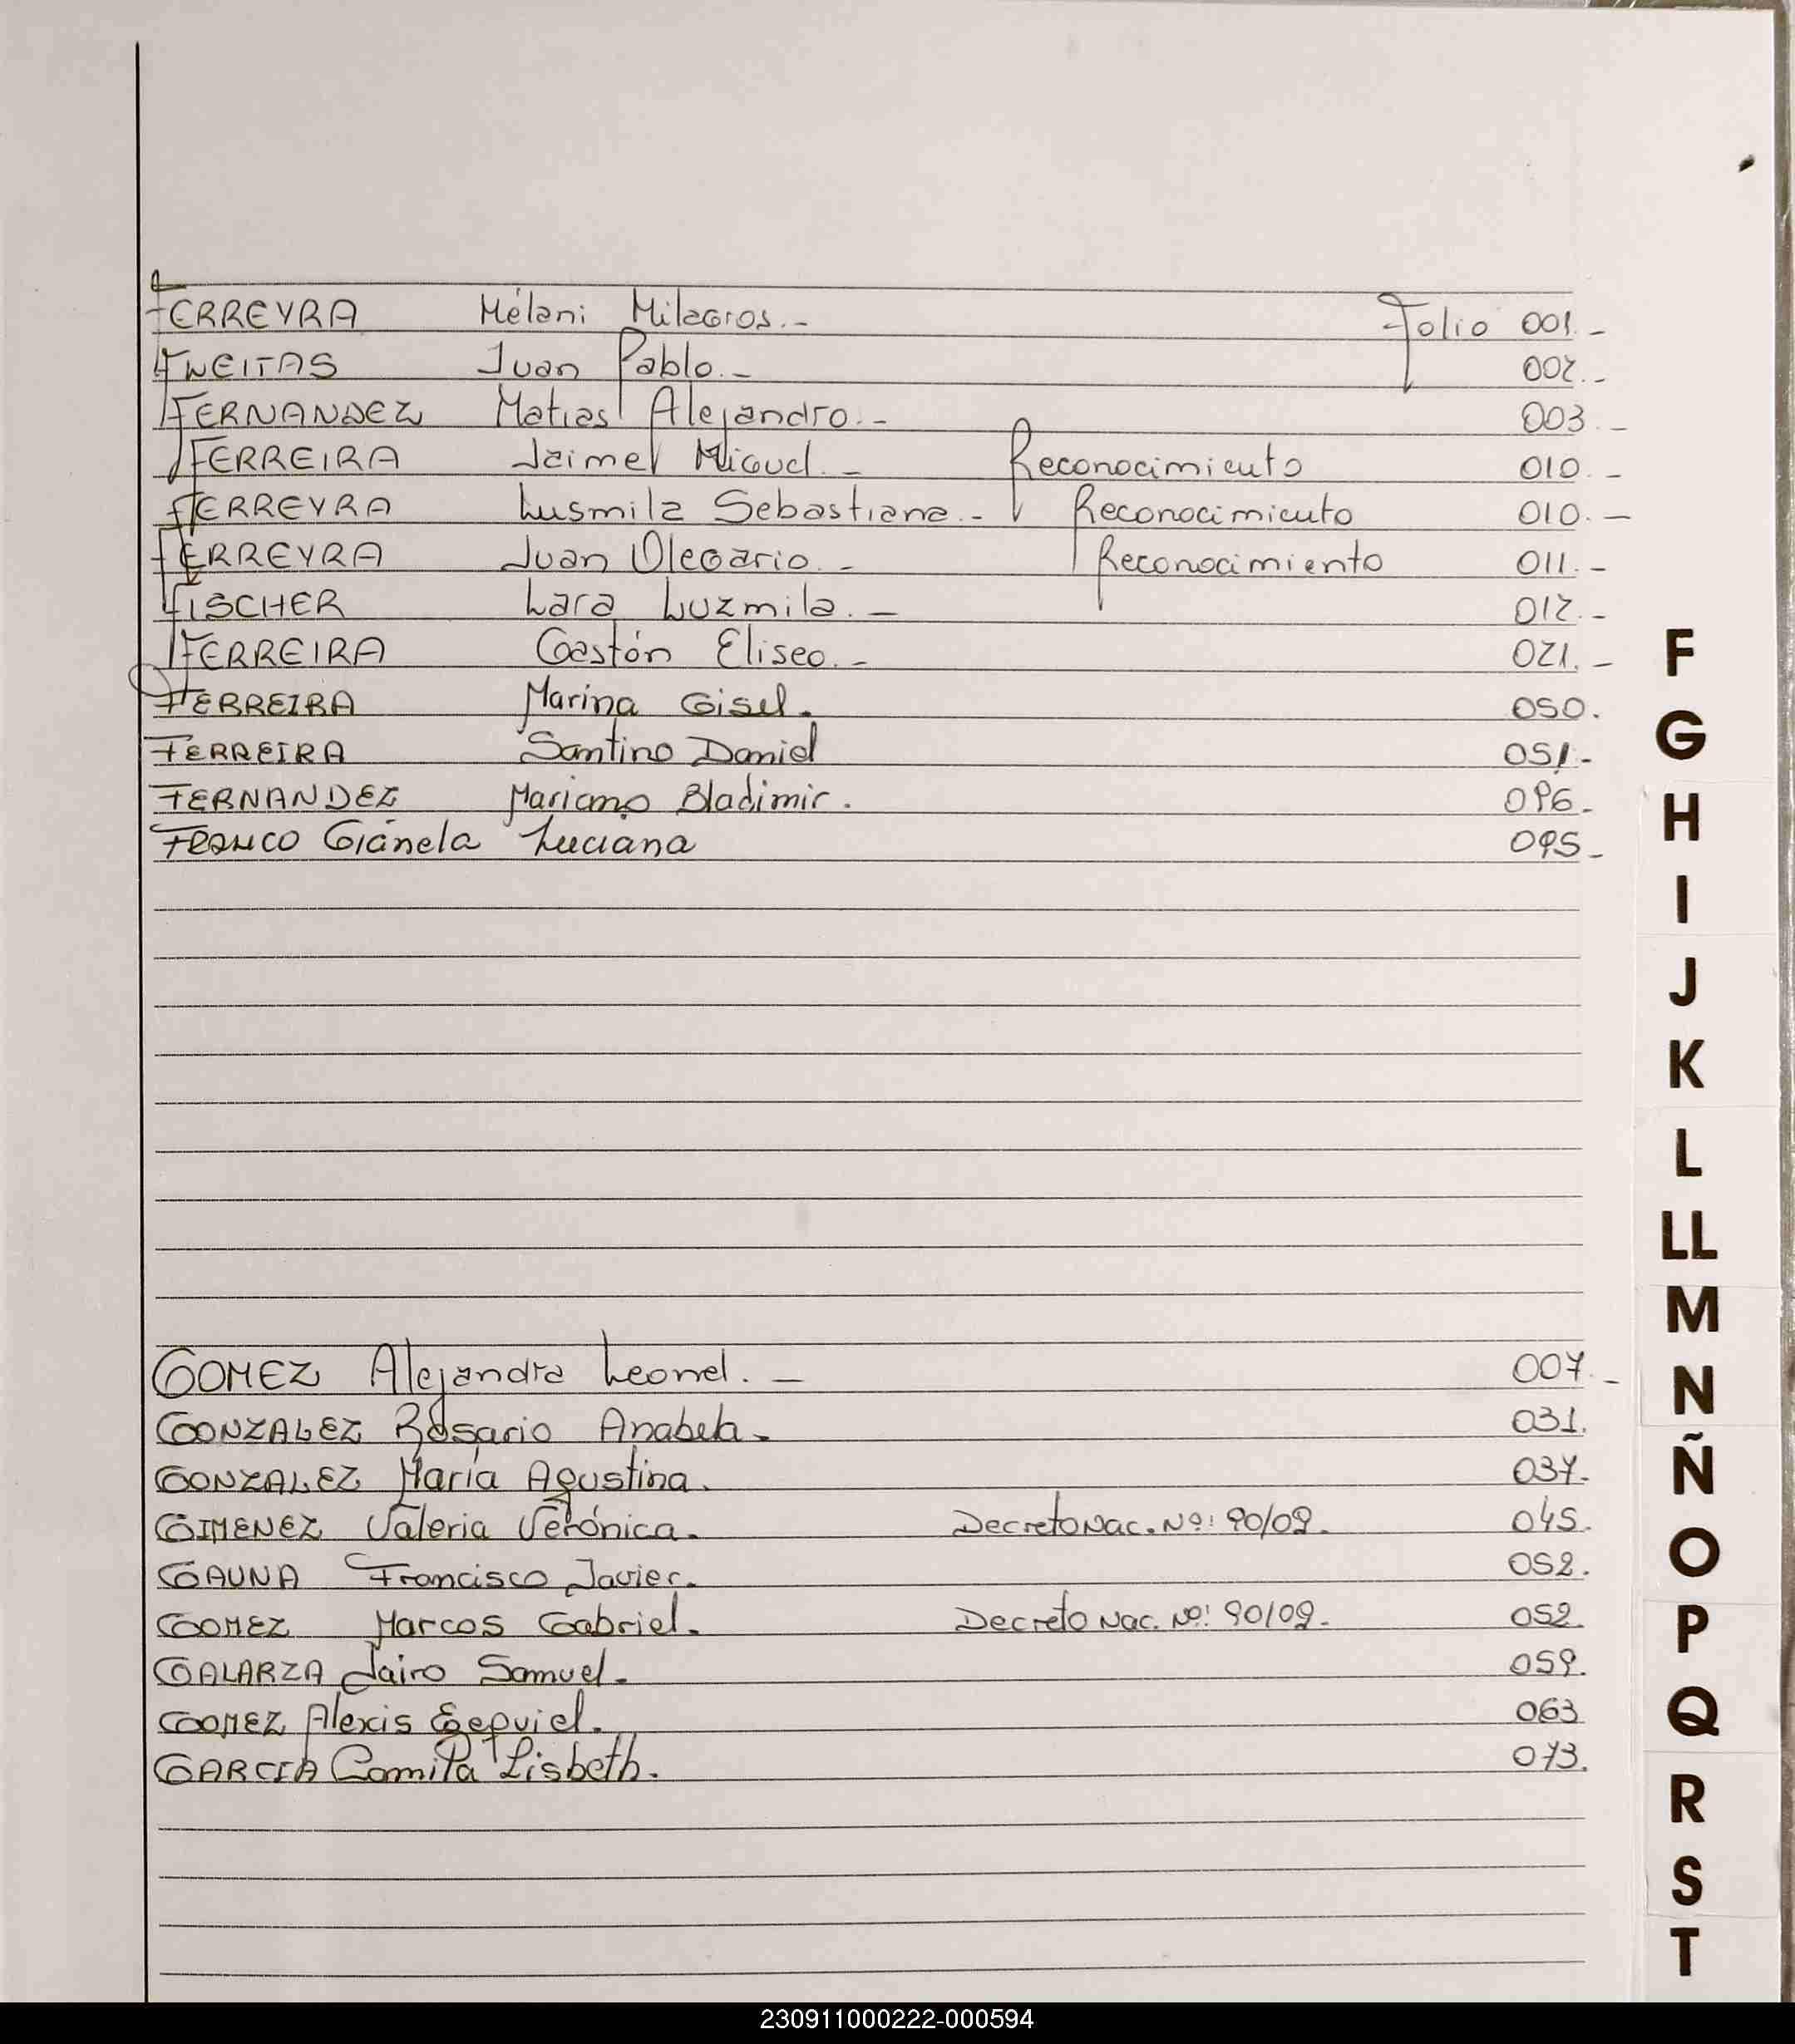 FERREYRA Mélani Milagros.- Folio 001.-
FREITAS Juan Pablo.- 002.-
FERNANDEZ Matias Alejandro.- 003.-
FERREIRA Jaime Miguel.- Reconocimiento 010.-
FERREYRA Lusmila Sebastiana.- Reconocimiento 010.-
FERREYRA Juan Olegario.- Reconocimiento 011.-
FISCHER Lara Luzmila.- 012.-
FERREIRA Gastón Eliseo.- 021.-
FERREIRA Marina Gisel. 050.
FERREIRA Santino Daniel 051.-
FERNANDEZ Mariano Bladimir. 096.-
FRANCO Gianela Luciana 095.-
GOMEZ Alejandra Leonel.- 007.-
GONZALEZ Rosario Anabela. 031.
GONZALEZ María Agustina. 037.-
GIMENEZ Valeria Verónica. Decreto Nac. Nº: 90/09. 045.
GAUNA Francisco Javier. 052.
GOMEZ Marcos Gabriel. Decreto Nac. Nº: 90/09. 052.
GALARZA Jairo Samuel. 059.
GOMEZ Alexis Ezequiel. 063
GARCIA Camila Lisbeth. 073.
F
G
H
I
J
K
L
LL
M
N
Ñ
O
P
Q
R
S
T
230911000222-000594